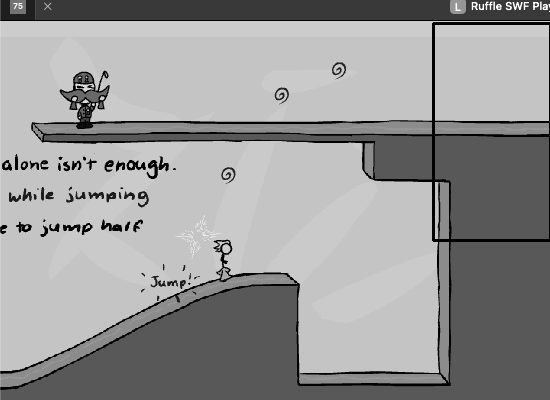 75
L Ruffle SWF Play
alone isn't enough.
while jumping
e to jump half
Jump!